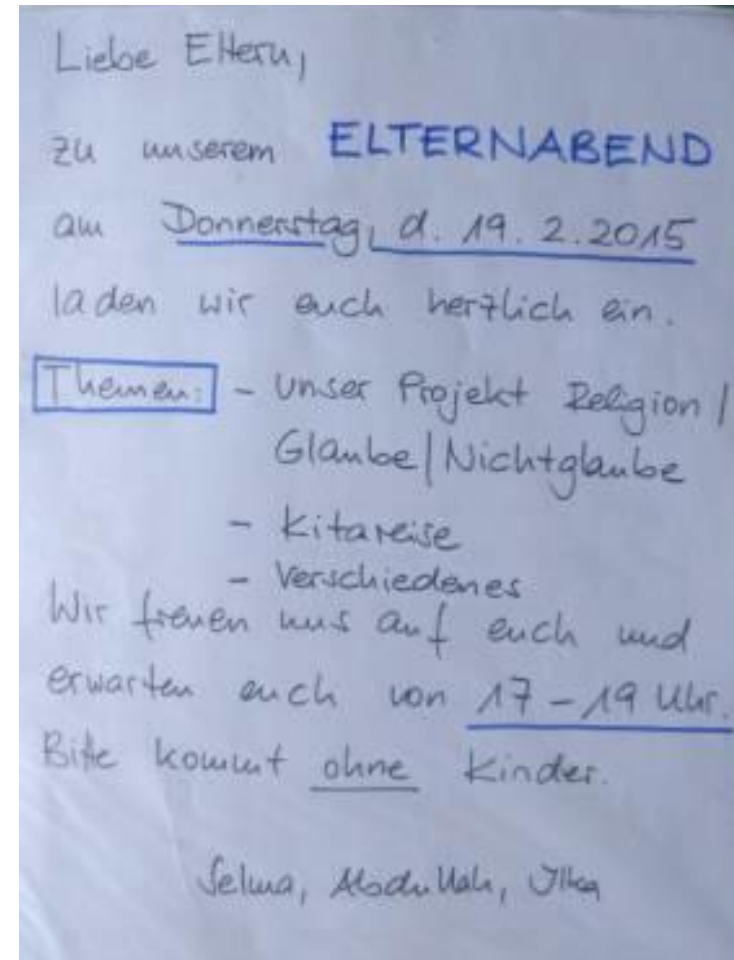 Liebe Eltern,
zu unserem ELTERNABEND
am Donnerstag, d. 19. 2. 2015
laden wir euch herzlich ein.
Themen: - Unser Projekt Religion /
Glaube/Nichtglaube
- Kitareise
- Verschiedenes
Wir freuen uns auf euch und
erwarten euch von 17 - 19 Uhr.
Bitte kommt ohne Kinder.
Selma, Abdullah, Ilka